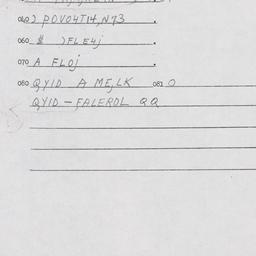 040 ) POVO4T14,N73
060 )FLE4j
070 A FLOj
080 QYID A ME,LK 081 O
QYID - FALEROL QQ